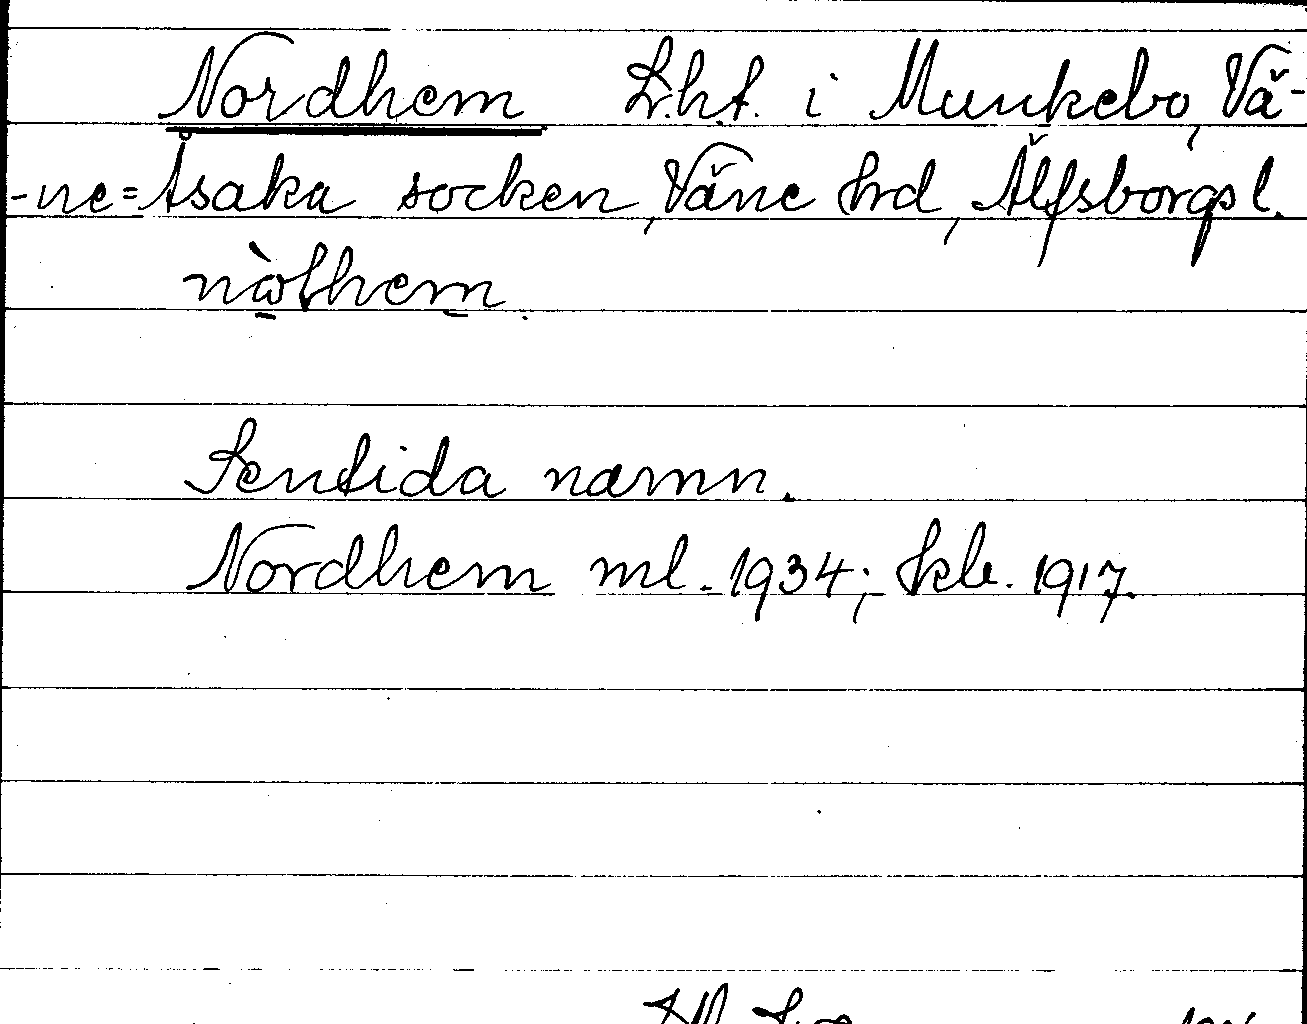 Nordhem L.h.t. i Munkebo, Vä-
-ne=Åsaka socken, Väne hrd, Älfsborgs l.
Sentida namn.
Nordhem ml. 1934; kb. 1917.